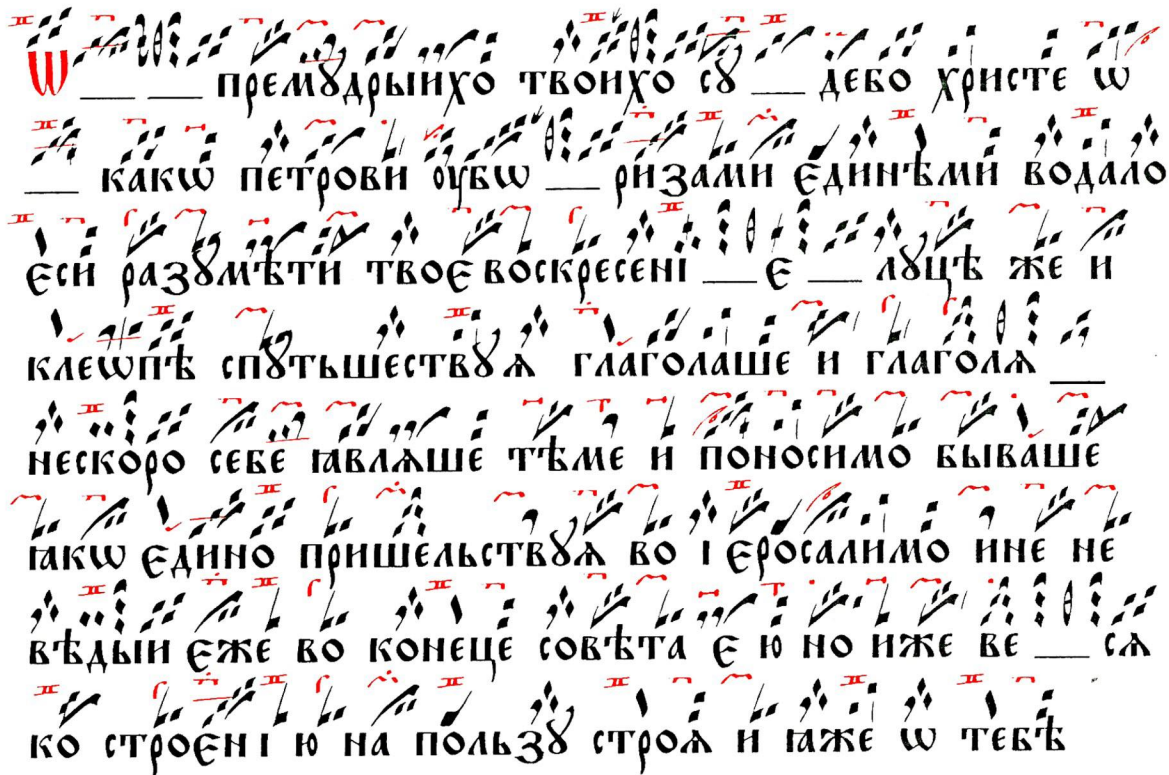 Ѡ __ __ премꙋдрыихо твоихо сꙋ __ дебо христе ѡ
__ какѡ петрови оубѡ __ ризами единѣми водало
еси разꙋмѣти твое воскресенi __ е __ лꙋцѣ же и
клеѡпѣ спꙋтьшествꙋѧ глаголаше и глаголѧ __
нескоро себе ꙗвлѧше тѣме и поносимо бываше
ꙗкѡ едино пришельствꙋѧ во і еросалимо ине не
вѣдыи еже во конеце совѣта е ю но иже ве __ сѧ
ко строені ю на пользꙋ строѧ и ꙗже ѡ тебѣ